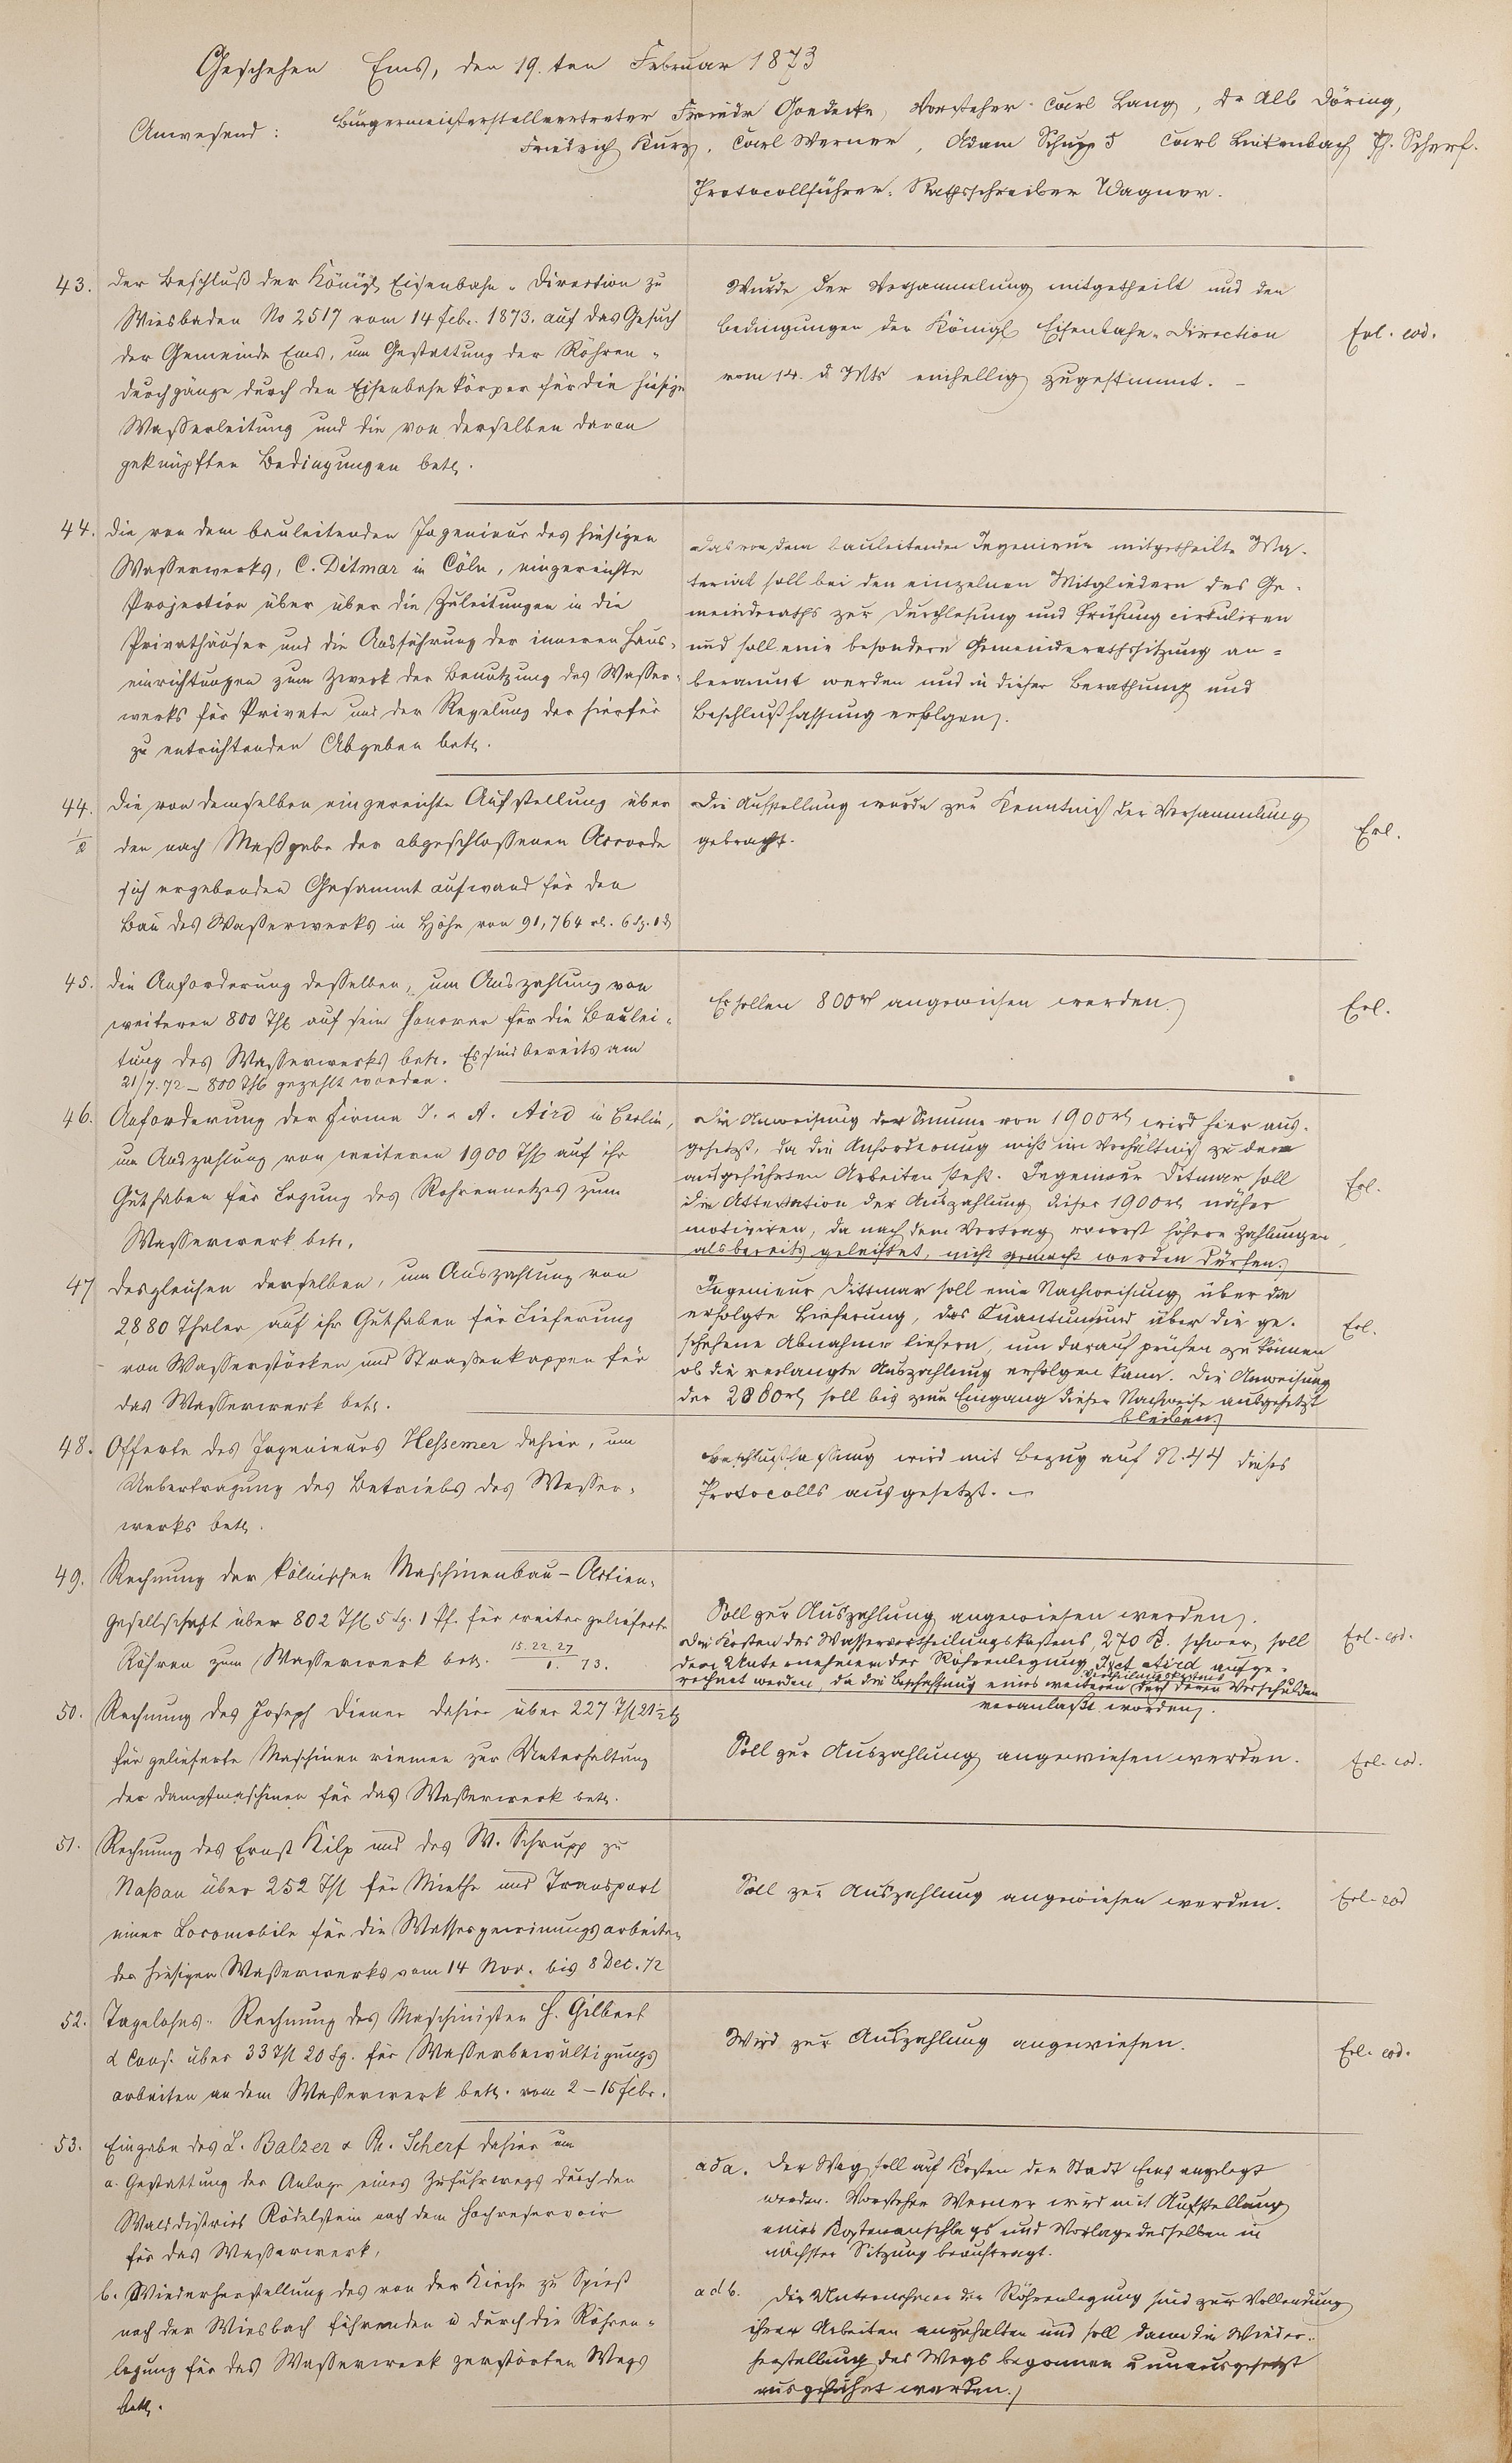 Geschehen Ems, den 19. ten Februar 1873
Anwesend: Bürgermeisterstellvertreter Friedr Goedecke, Vorsteher Carl Lang, Dr Alb Döring,
Friedrich Kurz, Carl Werner, Adam Schupp 5 Carl Linkenbach Ph. Scherf.
Protocollführer: Rathsschreiber Wagner.
43. Der Beschluß der Königl Eisenbahn-Direction zu
Wiesbaden No 2517 vom 14 Febr. 1873. auf das Gesuch
der Gemeinde Ems, um Gestattung der Röhren-
durchgänge durch den Eisenbahnkörper für die hiesige
Wasserleitung und die von derselben daran
geknüpften Bedingungen betr.
Wurde der Versammlung mitgetheilt und den
Bedingungen der Königl Eisenbahn-Direction
vom 14. d Mts einhellig zugestimmt. –
Erl. eod.
44. Die von dem bauleitenden Ingenieur des hiesigen
Wasserwerks, C. Ditmar in Cöln, eingereichte
Projection über über die Zuleitungen in die
Privathäuser und die Ausführung der inneren Haus-
einrichtungen zum Zweck der Benutzung des Wasser-
werks für Private und der Regelung der hierfür
zu entrichtenden Abgaben betr.
Das von dem bauleitenden Ingenieur mitgetheilte Ma-
terial soll bei den einzelnen Mitgliedern des Ge-
meinderaths zur Durchlesung und Prüfung cirkuliren
und soll eine besondere Gemeinderathssitzung an-
beraumt werden und in dieser Berathung und
Beschlußfassung erfolgen.
44. 1/2 Die von demselben eingereichte Aufstellung über
den nach Maßgabe der abgeschlossenen Accorde
sich ergebenden Gesammtaufwand für den
Bau des Wasserwerks in Höhe von 91,764 rl. 6 Sg. 1 d
Die Aufstellung wurde zur Kenntniß der Versammlung
gebracht.
Erl.
45. Die Anforderung desselben, um Auszahlung von
weiteren 800 Thl auf sein Honorar für die Baulei-
tung des Wasserwerks betr. Es sind bereits am
21/7.72 – 800 Thl gezahlt worden.
Es sollen 800 rl angewiesen werden.
Erl.
46. Anforderung der Firma J. & A. Aird in Berlin,
um Auszahlung von weiteren 1900 Thl auf ihr
Guthaben für Legung des Rohrennetzes zum
Wasserwerk betr.
Die Anweisung der Summe von 1900 rl wird hier aus-
gesetzt, da die Anforderung nicht im Verhältniß zu dem
ausgeführten Arbeiten steht. Ingenieur Ditmar soll
die Attestation der Auszahlung dieser 1900 rl näher
motiviren, da nach dem Vertrag vorerst höhere Zahlungen,
als bereits geleistet, nicht gemacht werden dürfen.
Erl.
47 Desgleichen derselben, um Auszahlung von
2880 Thaler auf ihr Guthaben für Lieferung
von Wasserstöcken und Strassenkappen für
das Wasserwerk betr.
Ingenieur Dittmar soll eine Nachweisung über die
erfolgte Lieferung, das Quantum und über die ge-
schehene Abnahme liefern, um darauf prüfen zu können
ob die verlangte Auszahlung erfolgen kann. Die Anweisung
der 2880 rl soll bis zum Eingang dieser Nachweise ausgesetzt
bleiben.
Erl.
48. Offerte des Ingenieurs Hessemer dahier, um
Uebertragung des Betriebs des Wasser-
werks betr.
Beschlußfassung wird mit Bezug auf N. 44 dieses
Protocolls ausgesetzt. –
49. Rechnung der kölnischen Maschinenbau-Actien-
gesellschaft über 802 Thl 5 Sg. 1 Pf. für weiter gelieferte
Röhren zum Wasserwerk betr. 15. 22. 27 / 1. 73.
Soll zur Auszahlung angewiesen werden.
Die Kosten des Wasservertheilungskastens, 270 K. schwer, soll
dem Unternehmer der Röhrenlegung J & A Aird aufge-
rechnet werden, da die Beschaffung eines weiteren Vertheilungskastens durch deren Verschulden
veranlaßt worden.
Erl. eod.
50. Rechnung des Joseph Diener dahier über 227 Thl 21 1/2 Sg
für gelieferte Maschinenriemen zur Unterhaltung
der Dampfmaschinen für das Wasserwerk betr.
Soll zur Auszahlung angewiesen werden.
Erl. eod.
51. Rechnung des Ernst Kilp und des W. Schrupp zu
Nassau über 252 Thl für Miethe und Transport
einer Locomobile für die Wassergewinnungsarbeiten
des hiesigen Wasserwerks vom 14 Nov. bis 8 Dec. 72
Soll zur Auszahlung angewiesen werden.
Erl. eod
52. Tagelohns-Rechnung des Maschinisten H. Gilbert
& Cons. über 33 Thl 20 Sg. für Wasserbewältigungs
arbeiten an dem Wasserwerk betr. vom 2 – 15 Febr.
Wird zur Auszahlung angewiesen.
Erl. eod.
53. Eingabe des L. Balzer & Ph. Scherf dahier um
a. Gestattung der Anlage eines Zufuhrwegs durch den
Walddistrict Rödelstein nach dem Hochreservoir
für das Wasserwerk,
b. Wiederherstellung des von der Kirche zu Spieß
nach der Wiesbach führenden u durch die Röhren-
legung für das Wasserwerk zerstörten Wegs
betr.
ad a. Der Weg soll auf Kosten der Stadt Ems angelegt
werden. Vorsteher Werner wird mit Aufstellung
eines Kostenanschlags und Vorlage desselben in
nächster Sitzung beauftragt.
ad b. Die Unternehmer der Röhrenlegung sind zur Vollendung
ihrer Arbeiten anzuhalten und soll dann die Wieder-
herstellung des Wegs begonnen u unausgesetzt
ausgeführt werden.